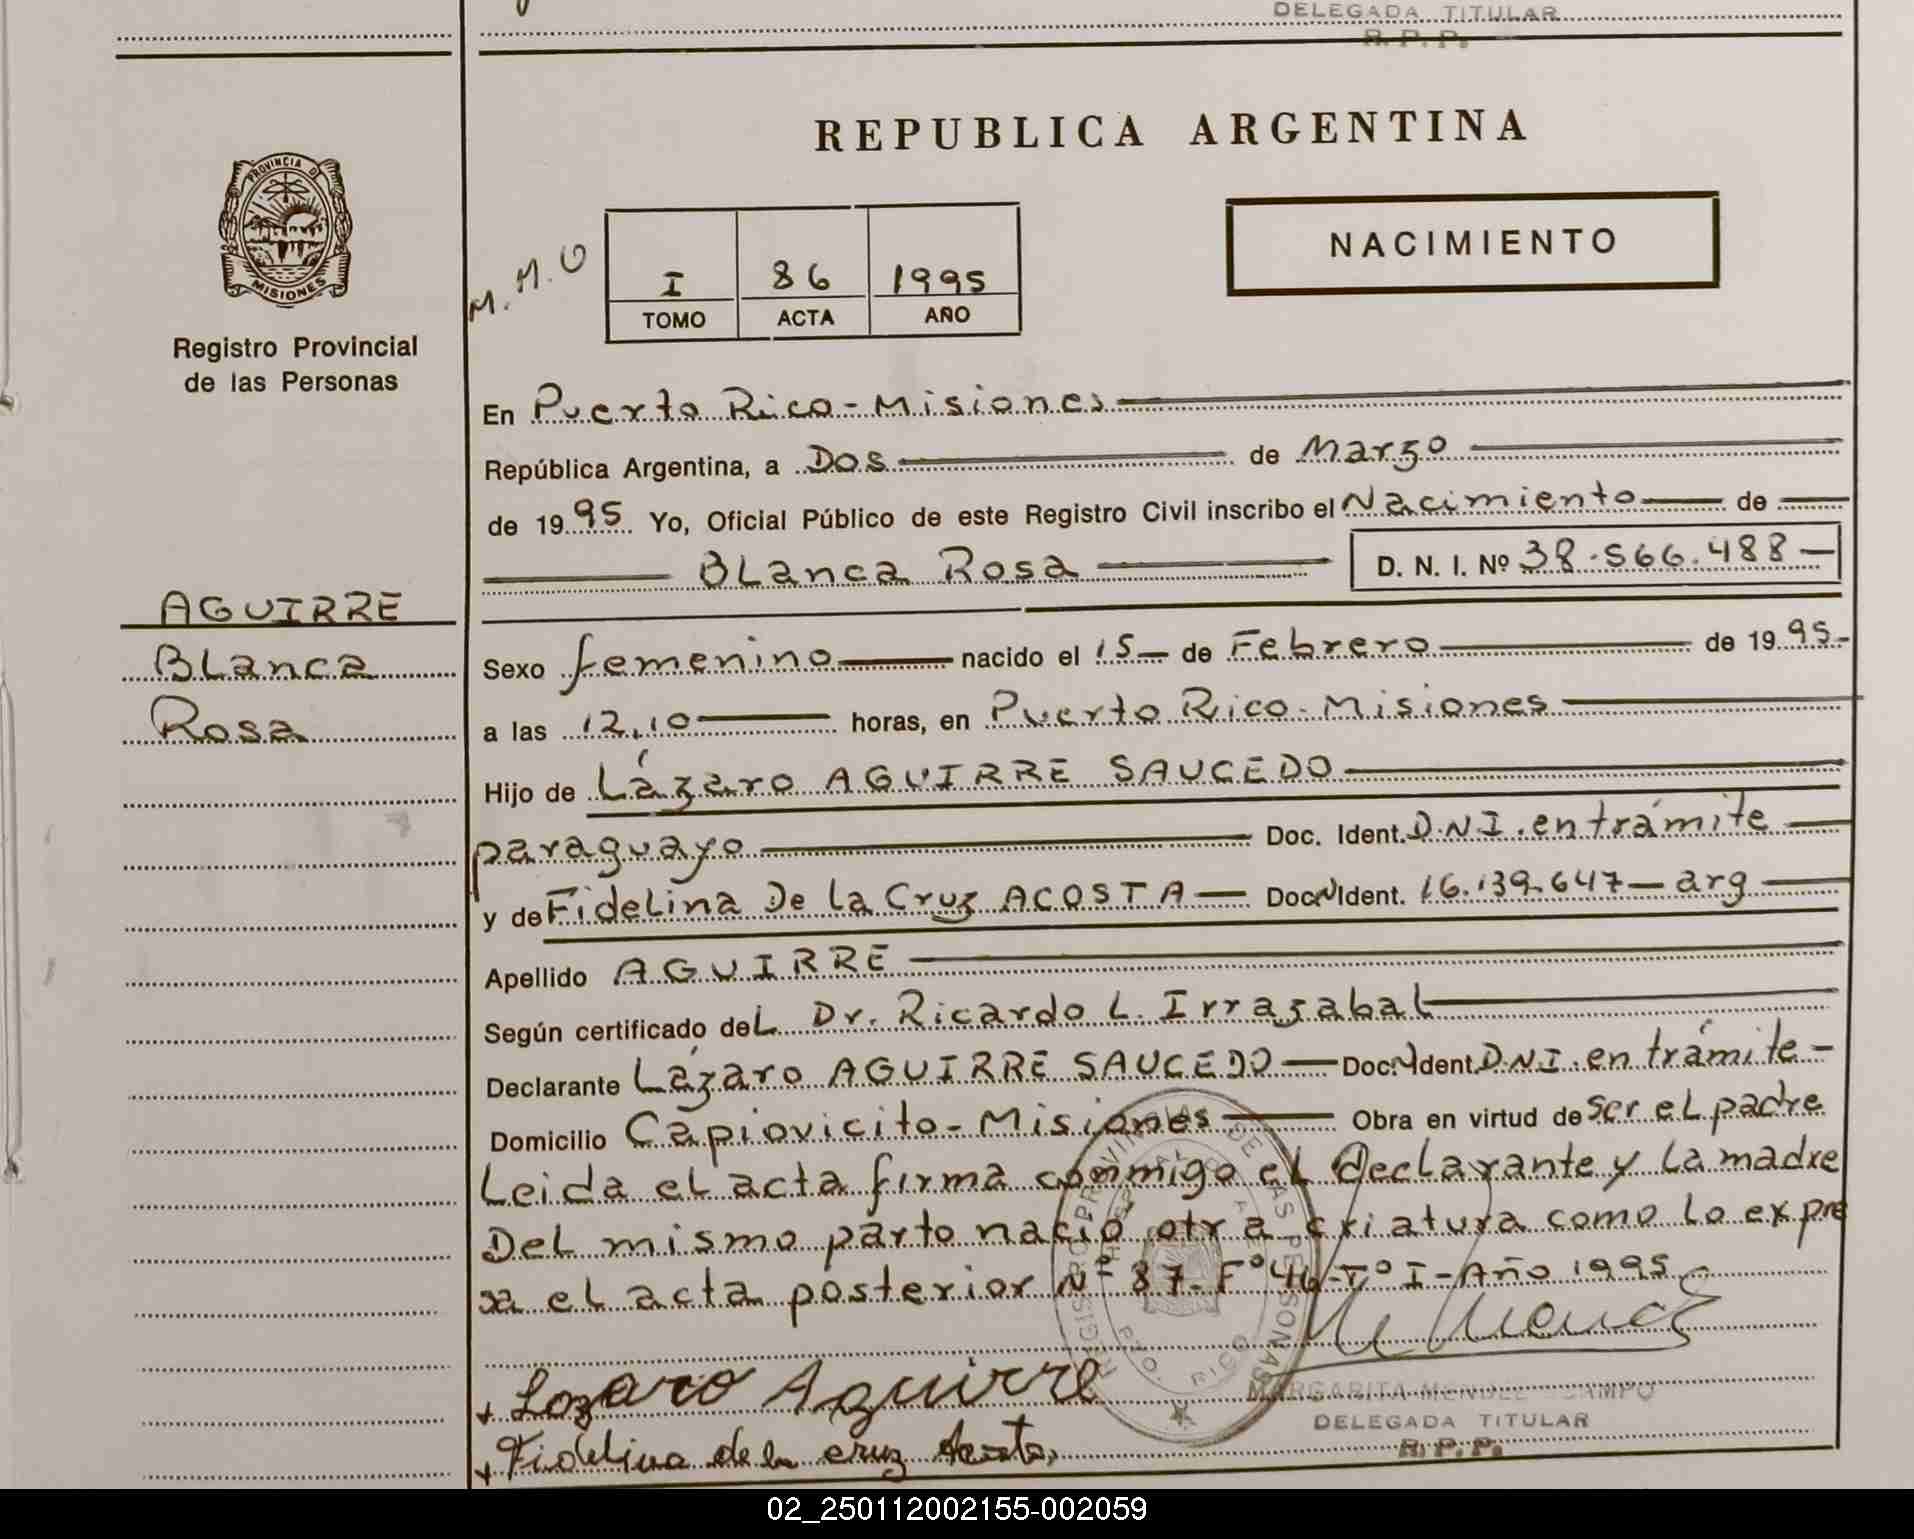 DELEGADA TITULAR
R. P. P.
REPUBLICA ARGENTINA
PROVINCIA D
MISIONES
Registro Provincial
de las Personas
M. M. O
I 86 1995
TOMO ACTA AÑO
NACIMIENTO
En Puerto Rico - Misiones
República Argentina, a Dos de Marzo
de 1995 Yo, Oficial Público de este Registro Civil inscribo el Nacimiento de
Blanca Rosa D. N. I. Nº 38.566.488
AGUIRRE
Blanca
Rosa
Sexo femenino nacido el 15 de Febrero de 1995
a las 12,10 horas, en Puerto Rico - Misiones
Hijo de Lázaro AGUIRRE SAUCEDO
paraguayo Doc. Ident. D.N.I. en trámite
y de Fidelina De la Cruz ACOSTA Doc. Ident. 16.139.647 - arg
Apellido AGUIRRE
Según certificado del Dr. Ricardo L. Irrazabal
Declarante Lázaro AGUIRRE SAUCEDO Doc. Ident. D.N.I. en trámite
Domicilio Capiovicito - Misiones Obra en virtud de ser el padre
Leida el acta firma conmigo el declarante y la madre
Del mismo parto nació otra criatura como lo expre
sa el acta posterior Nº 87 - Fº 46 - Tº I - Año 1995
REGISTRO PROVINCIAL DE LAS PERSONAS
PTO. RICO
Lozaro Aguirre
MARGARITA MENDEZ CAMPO
DELEGADA TITULAR
R. P. P.
Fidelina de la cruz Acosta
02_250112002155-002059